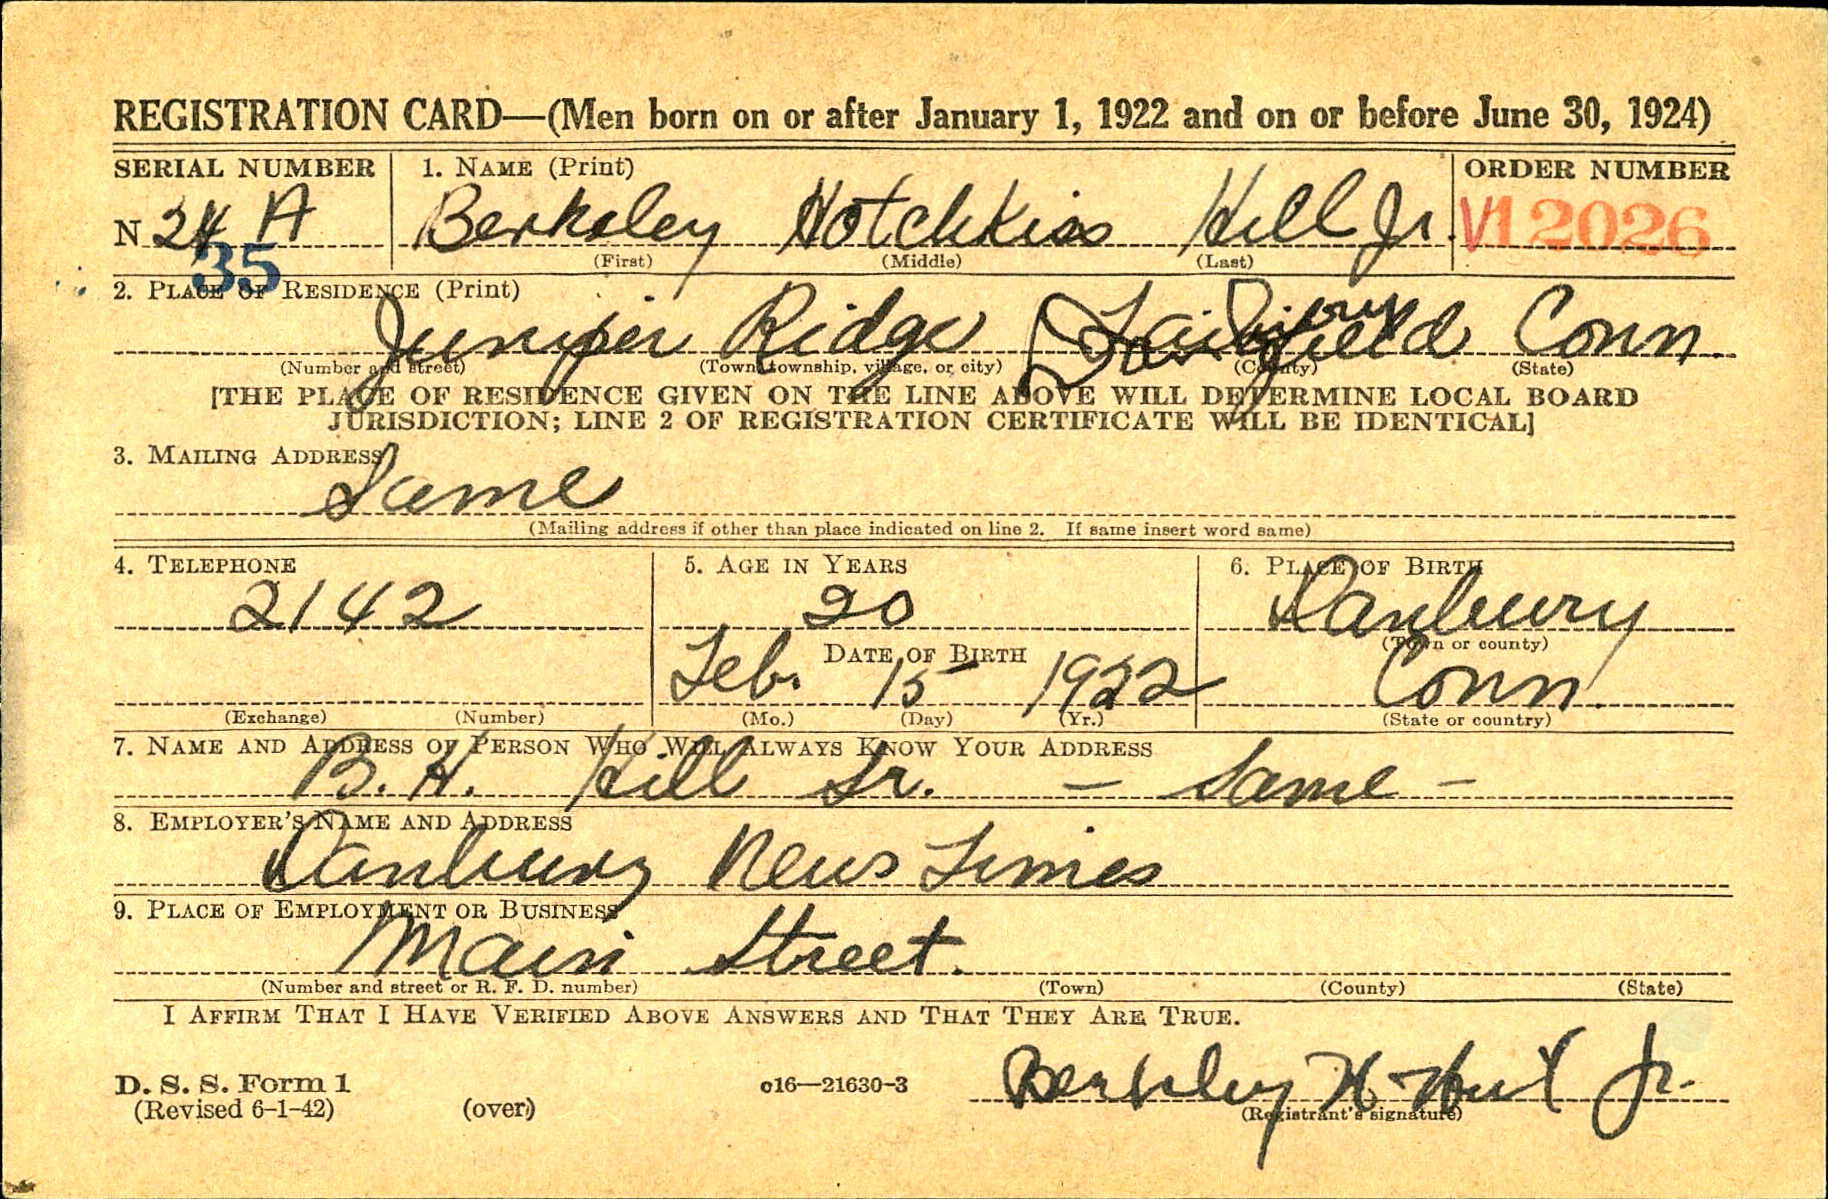 REGISTRATION CARD—(Men born on or after January 1, 1922 and on or before June 30, 1924)
SERIAL NUMBER 1. NAME (Print) ORDER NUMBER
N 24 A Berkeley Hotchkiss Hill Jr. 12026
35 (First) (Middle) (Last)
2. PLACE OF RESIDENCE (Print)
Juniper Ridge Danbury Fairfield Conn.
(Number and street) (Town, township, village, or city) (County) (State)
[THE PLACE OF RESIDENCE GIVEN ON THE LINE ABOVE WILL DETERMINE LOCAL BOARD
JURISDICTION; LINE 2 OF REGISTRATION CERTIFICATE WILL BE IDENTICAL]
3. MAILING ADDRESS
Same
(Mailing address if other than place indicated on line 2. If same insert word same)
4. TELEPHONE 5. AGE IN YEARS 6. PLACE OF BIRTH
2142 20 Danbury
DATE OF BIRTH (Town or county)
Feb. 15 1922 Conn.
(Exchange) (Number) (Mo.) (Day) (Yr.) (State or country)
7. NAME AND ADDRESS OF PERSON WHO WILL ALWAYS KNOW YOUR ADDRESS
B. H. Hill Sr. – Same –
8. EMPLOYER'S NAME AND ADDRESS
Danbury News Times
9. PLACE OF EMPLOYMENT OR BUSINESS
Main Street.
(Number and street or R. F. D. number) (Town) (County) (State)
I AFFIRM THAT I HAVE VERIFIED ABOVE ANSWERS AND THAT THEY ARE TRUE.
D. S. S. Form 1 c16—21630-3 Berkeley H. Hill Jr.
(Revised 6-1-42) (over) (Registrant's signature)